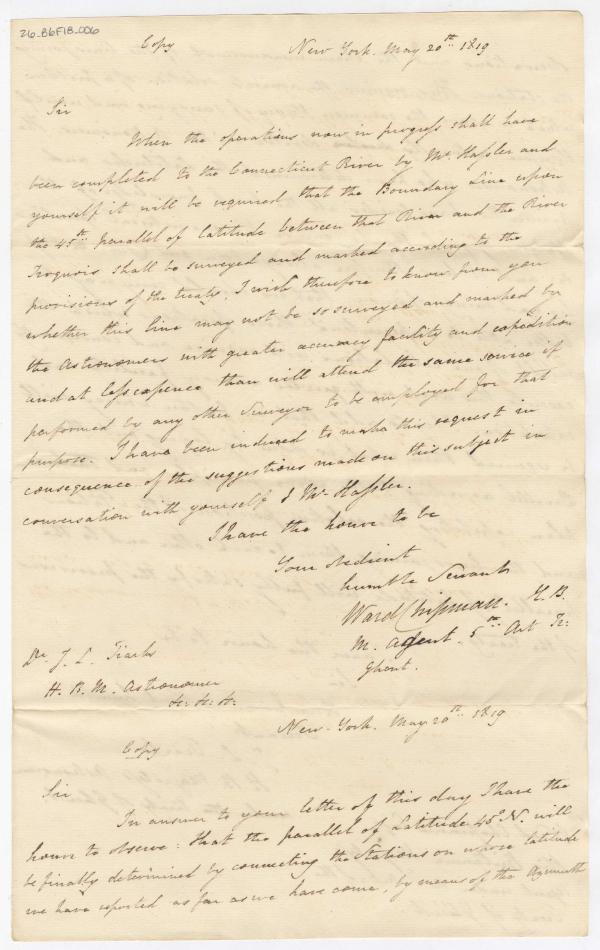 26-B6F18-006
Copy New York. May 20th 1819
Sir
When the operations now in progress shall have
been completed to the Connecticut River by Mr. Hassler and
yourself it will be required that the Boundary Line upon
the 45th parallel of latitude between that River and the River
Iroquois shall be surveyed and marked according to the
provisions of the treaty. I wish therefore to know from you
whether this line may not be so surveyed and marked by
the Astronomers with greater accuracy facility and expedition
and at less expence than will attend the same service if
performed by any other Surveyor to be employed for that
purpose. I have been induced to make this request in
consequence of the suggestions made on this subject in
conversation with yourself & Mr Hassler.
I have the honor to be
Your obedient
humble Servant
Ward Chipman. H. B.
M. Agent. 5th Art Tr:
Ghent.
Dr. J. L. Tiarks
H. B. M. Astronomer
&c. &c. &c.
New-York. May 20th 1819
Copy
Sir
In answer to your letter of this day I have the
honor to observe: that the parallel of Latitude 45° N. will
be finally determined by connecting the Stations on whose latitude
we have reported as far as we have come, by means of the Azimuth